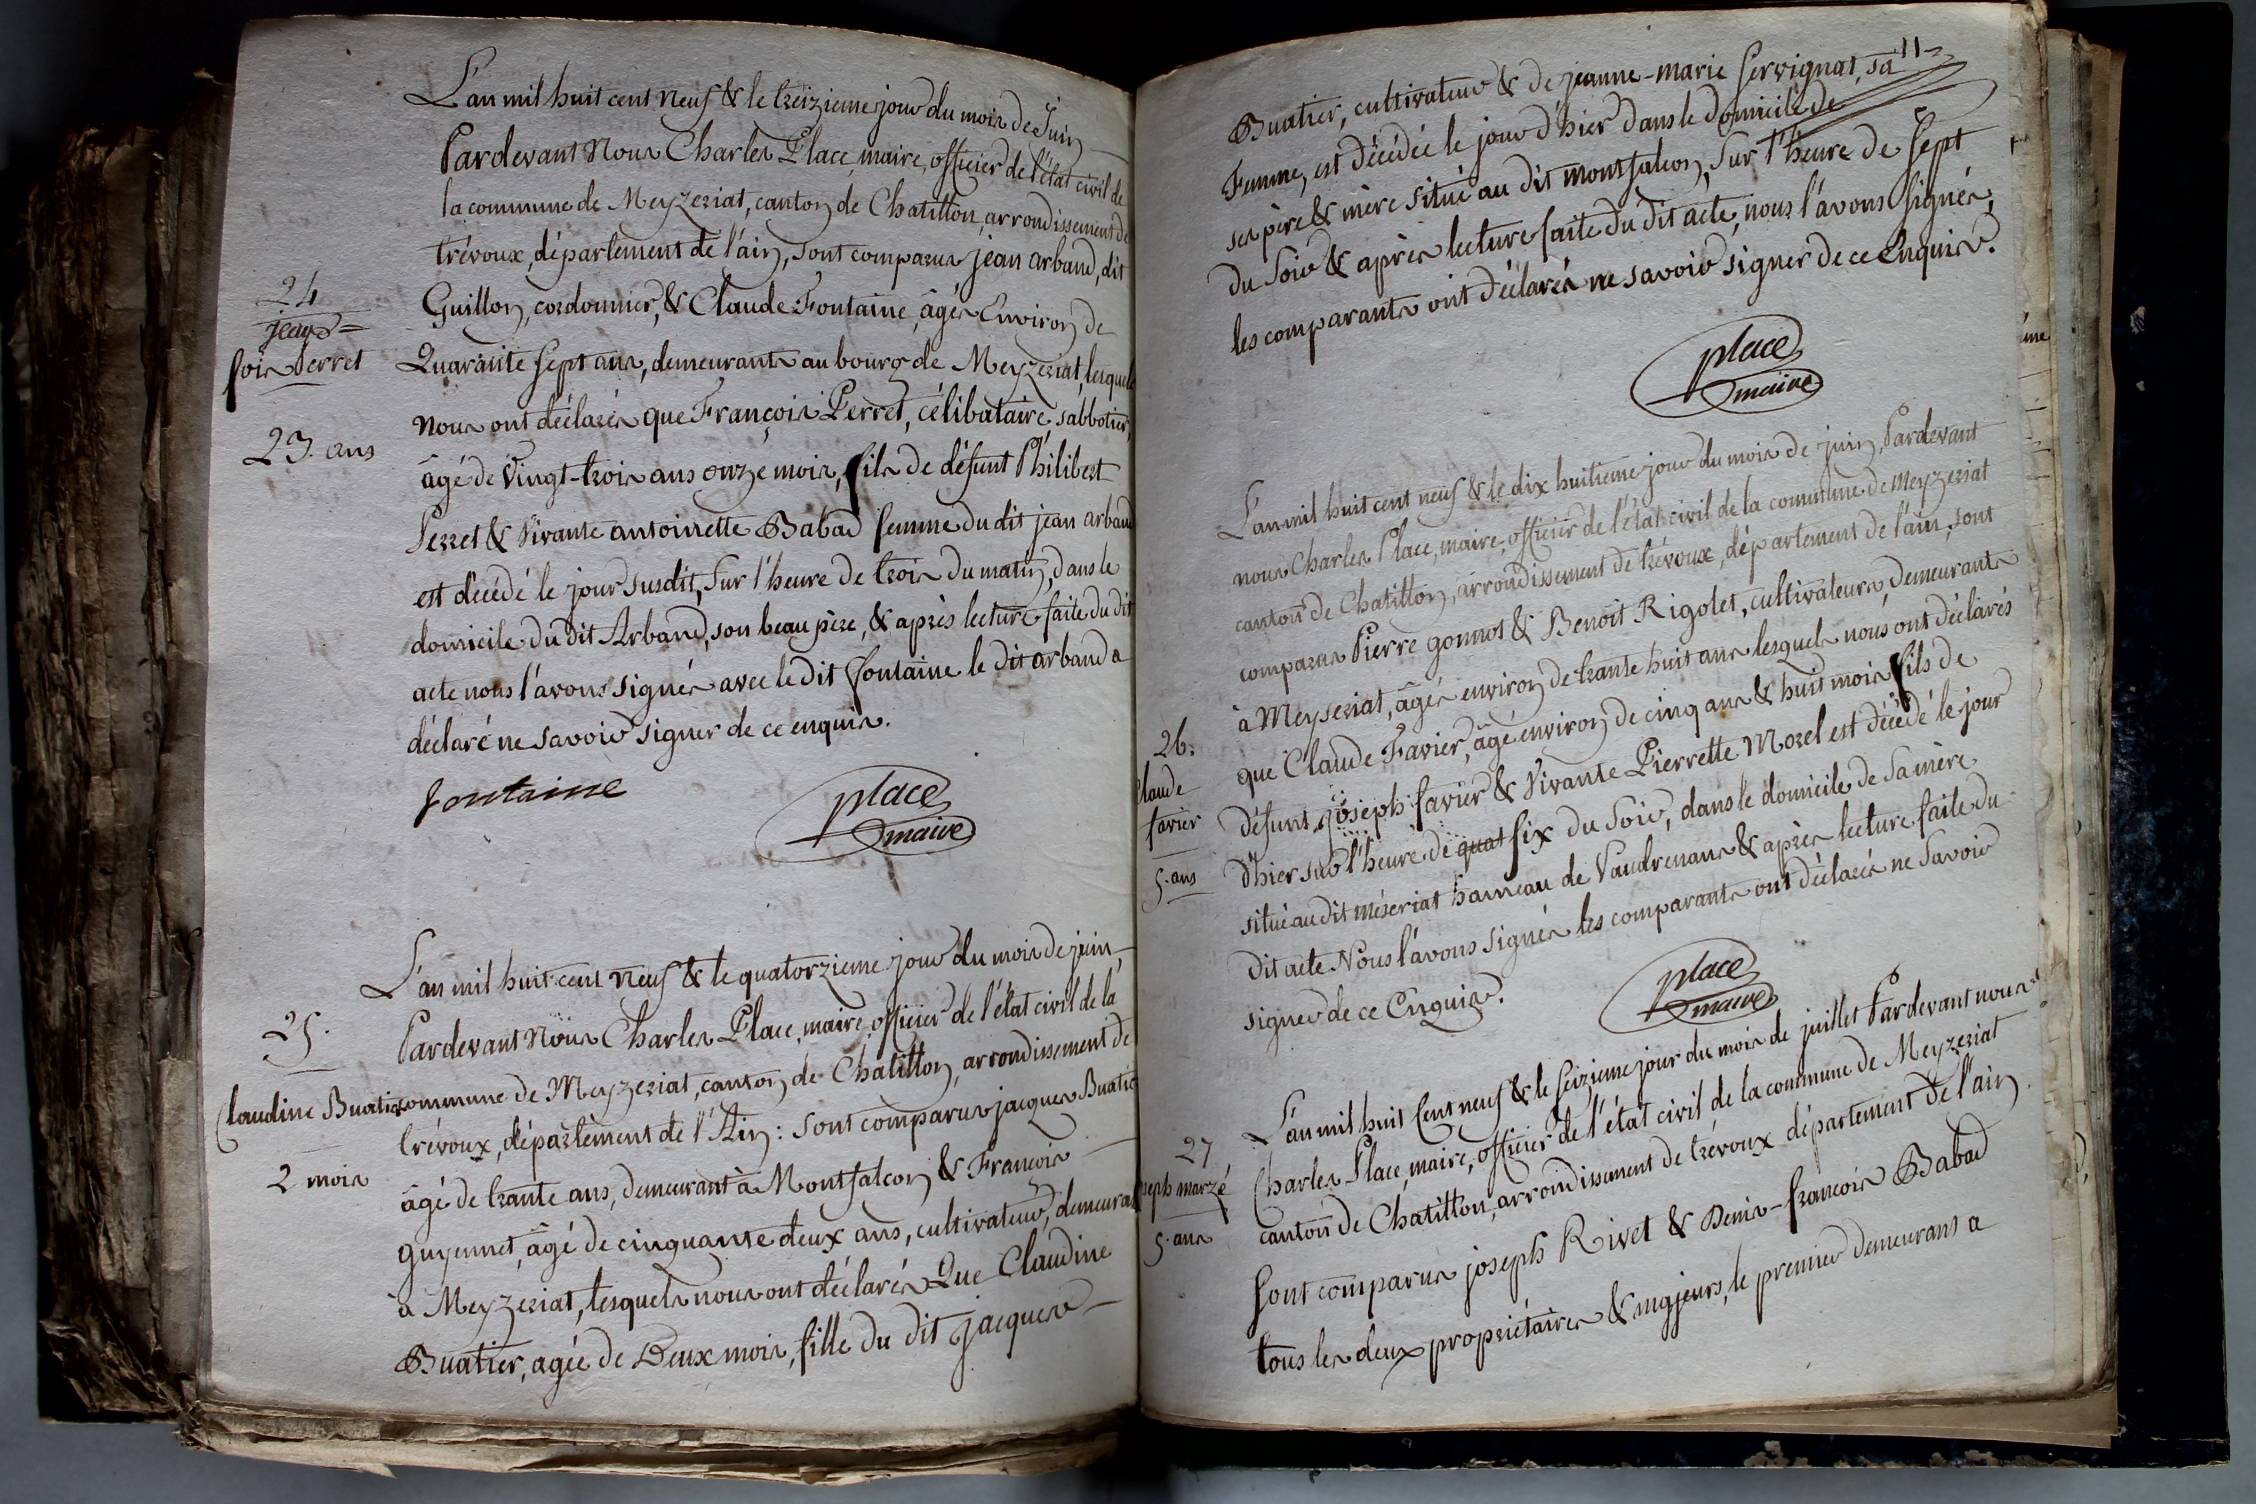 L'an mil huit cent neuf & le treizieme jour du mois de Juin
Pardevant Nous Charles Place, maire, officier de l'état civil de
la commune de Meyzeriat, canton de Chatillon, arrondissement de
trévoux, département de l'ain, sont comparus jean arband, dit
Guillon, cordonnier, & Claude Fontaine, âgés Environ de
Quarante sept ans, demeurants au bourg de Meyzeriat, lesquels
nous ont déclarés que François Perret, célibataire, sabbotier,
âgé de Vingt-trois ans onze mois, fils de défunt Philibert
Perret & Vivante antoinette Babad femme du dit jean arband
est décédé le jour susdit, sur l'heure de trois du matin, dans le
domicile du dit Arband, son beau père, & après lecture faite du dit
acte nous l'avons signés avec le dit fontaine le dit arband a
déclaré ne savoir signer de ce enquis.
24
jean =
fois perret
23. ans
fontaine
place
maire
L'an mil huit cent neuf & le quatorzieme jour du mois de juin
Pardevant Nous Charles Place, maire, officier de l'état civil de la
commune de Meyzeriat, canton de Chatillon, arrondissement de
trévoux, département de l'Ain : sont comparus jacques Buatier
âgé de trante ans, demeurant à Montfalcon & François
guyennet, âgé de cinquante deux ans, cultivateur, demeurant
à Meyzeriat, lesquels nous ont déclarés Que Claudine
Buatier, agée de Deux mois, fille du dit jacques
25.
Claudine Buatier
2 mois
11
Buatier, cultivateur & de jeanne-marie Servignat, sa
Femme, est décédée le jour d'hier dans le domicile de
ses père & mère situé au dit montfalcon, sur l'heure de sept
du soir & après lecture faite du dit acte, nous l'avons signés,
les comparants ont déclarés ne savoir signer de ce Enquis.
place
maire
L'an mil huit cent neuf & le dix huitieme jour du mois de juin, Pardevant
nous Charles Place, maire, officier de l'état civil de la commune de Meyzeriat
canton de Chatillon, arrondissement de trévoux, département de l'ain, sont
comparus Pierre gonnot & Benoît Rigolet, cultivateurs, demeurants
à Meyseriat, âgés environ de trante huit ans lesquels nous ont déclarés
que Claude Favier, âgé environ de cinq ans & huit mois fils de
défunt joseph favier & Vivante Pierrette Morel est décédé le jour
d'hier sur l'heure de quat six du soir, dans le domicile de sa mère
situé au dit méseriat hameau de Vaudrenans & après lecture faite du
dit acte Nous l'avons signés les comparants ont déclarés ne savoir
signer de ce Enquis.
26.
Claude
favier
5. ans
place
maire
L'an mil huit cent neuf & le seizieme jour du mois de juillet Pardevant nous
Charles Place, maire, officier de l'état civil de la commune de Meyzeriat
canton de Chatillon, arrondissement de trévoux département de l'ain
sont comparus joseph Rivet & Denis-françois Babad
tous les deux propriétaires & majeurs, le premier demeurant a
27
joseph marzé
5. ans